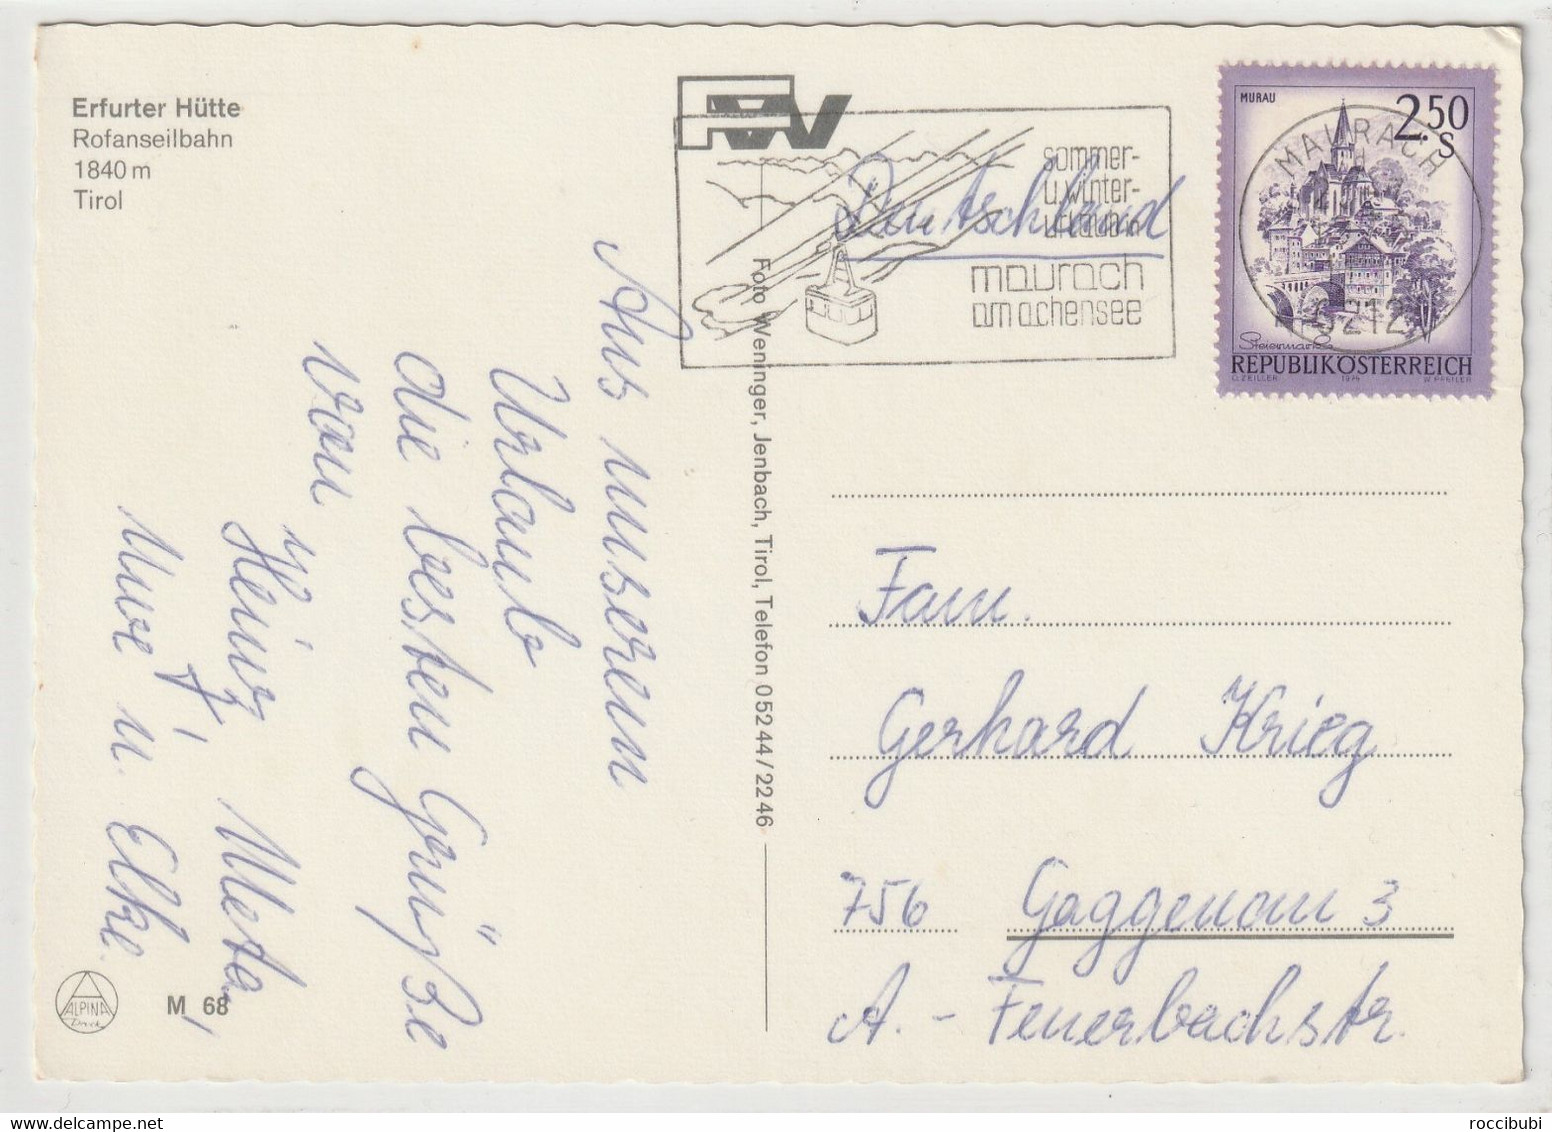 Erfurter Hütte
Rofanseilbahn
1840 m
Tirol
Aus unserem
Urlaub
die besten Grüße
von
Heinz, Meta,
Uwe u. Elke.
ALPINA
Druck
M 68
Foto Weninger, Jenbach, Tirol, Telefon 05244/2246
sommer-
u.winter-
urlaub in
maurach
am achensee
Deutschland
MURAU
2.50
S
MAURACH
6212
Steiermark
REPUBLIK ÖSTERREICH
O.ZEILLER 1974 W.PFEILER
Fam.
Gerhard Krieg
756 Gaggenau 3
A.-Feuerbachstr.
roccibubi